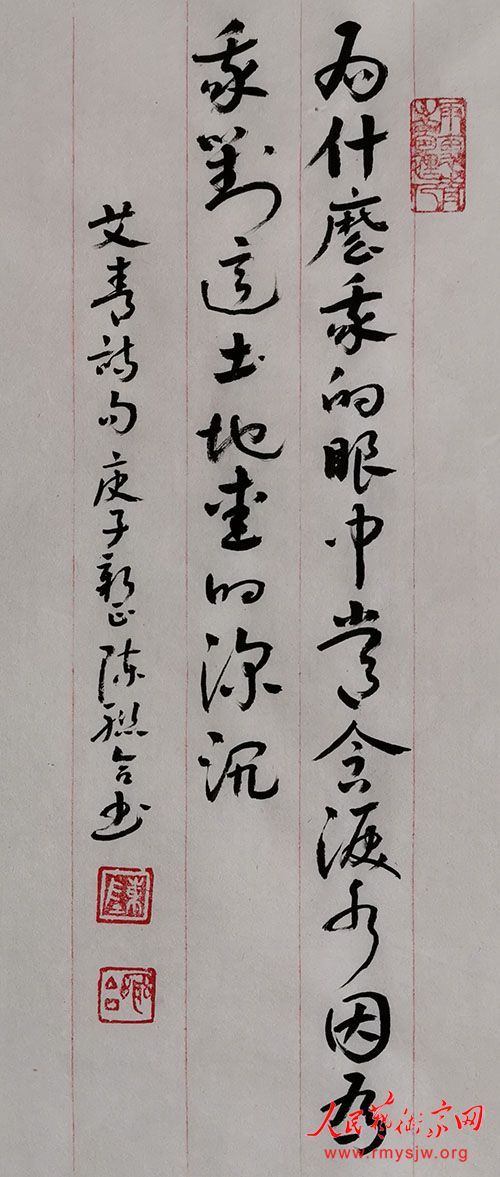 为什麽我的眼中常含淚水因為
我對這土地愛的深沉
艾青詩句庚子新正陈聯合书
人民藝術家网
www.rmysjw.org